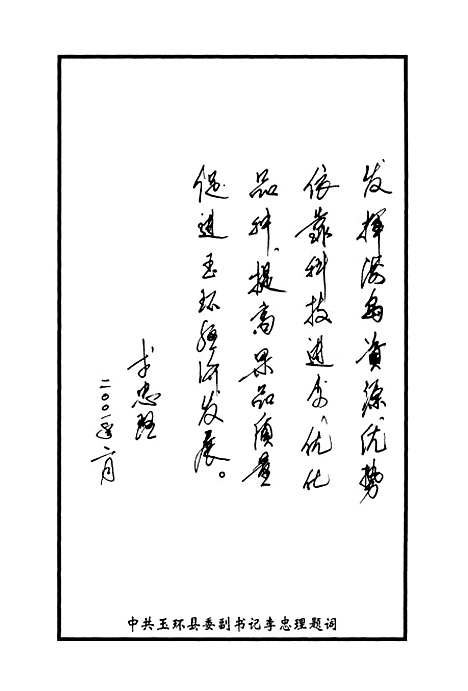 发挥海岛资源优势
依靠科技进步、优化
品种、提高果品质量
促进玉环经济发展。
李忠理
二〇〇一年六月
中共玉环县委副书记李忠理题词